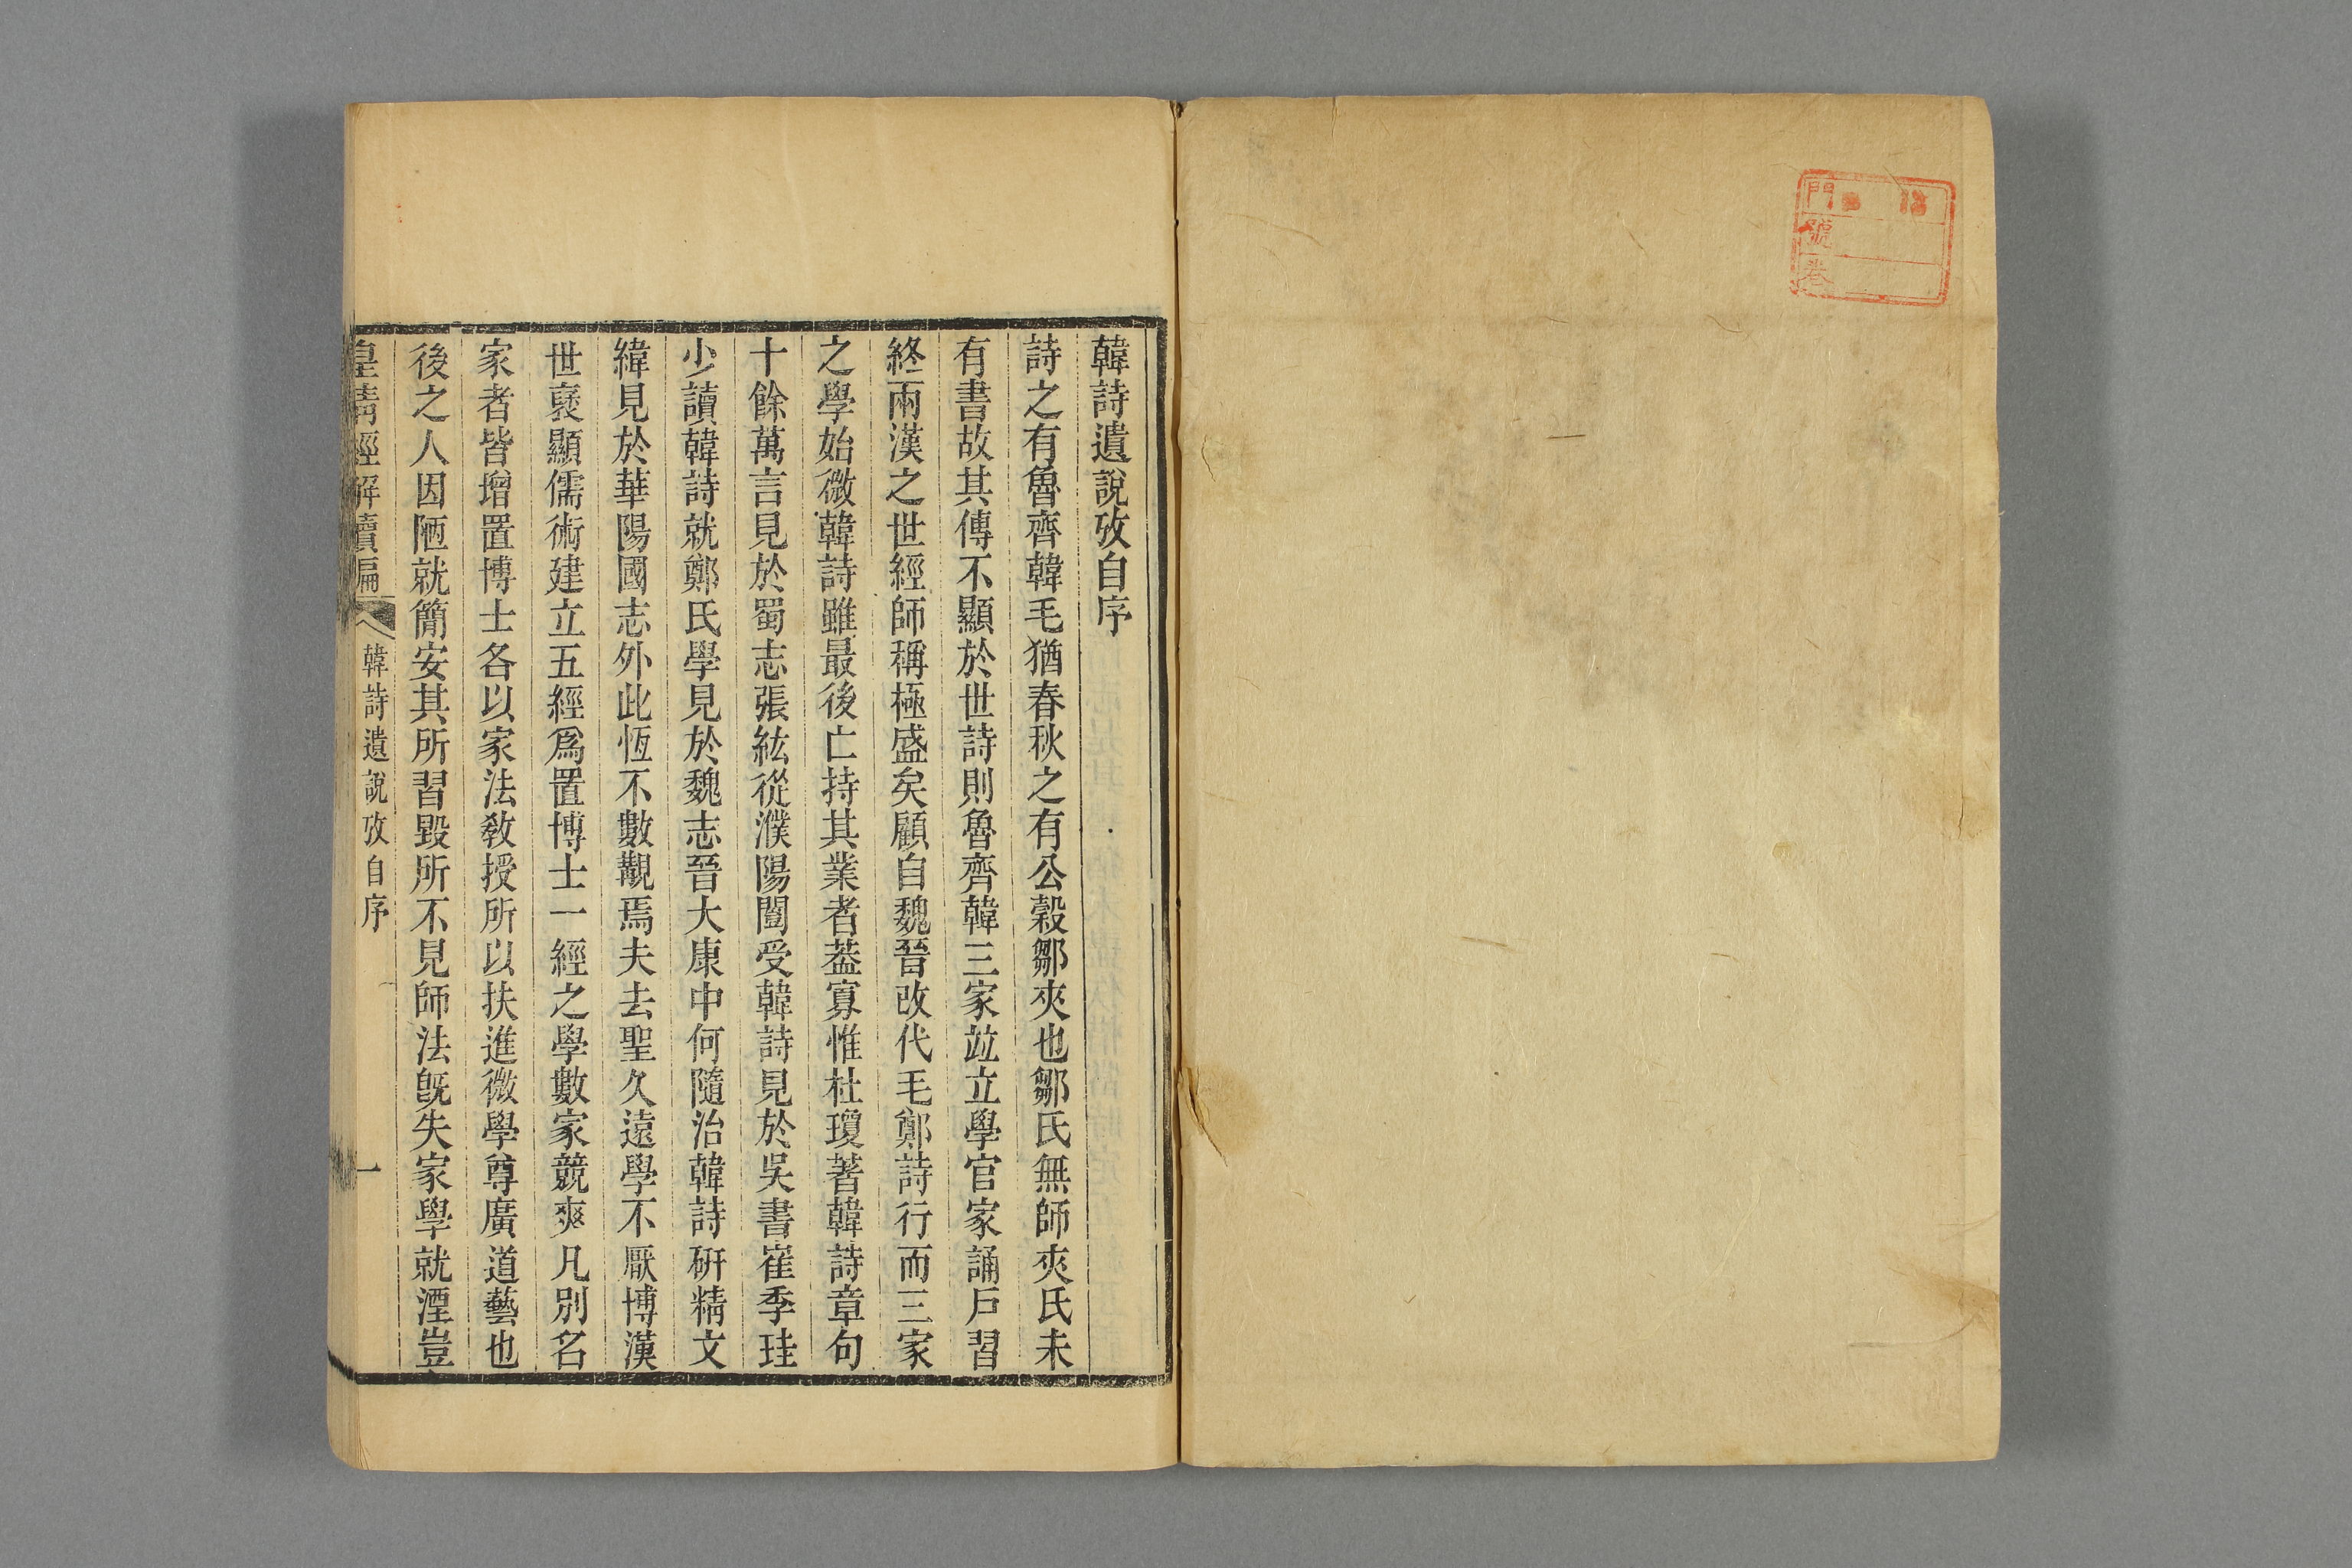 門
號
卷
韓詩遺說攷自序
詩之有魯齊韓毛猶春秋之有公穀鄒夾也鄒氏無師夾氏未
有書故其傳不顯於世詩則魯齊韓三家竝立學官家誦戶習
終兩漢之世經師稱極盛矣顧自魏晉改代毛鄭詩行而三家
之學始微韓詩雖最後亡持其業者葢寡惟杜瓊著韓詩章句
十餘萬言見於蜀志張紘從濮陽闓受韓詩見於吳書崔季珪
少讀韓詩就鄭氏學見於魏志晉大康中何隨治韓詩硏精文
緯見於華陽國志外此恆不數覯焉夫去聖久遠學不厭博漢
世褎顯儒術建立五經爲置博士一經之學數家競爽凡別名
家者皆增置博士各以家法敎授所以扶進微學尊廣道藝也
後之人因陋就簡安其所習毀所不見師法旣失家學就湮豈
皇淸經解續編
韓詩遺說攷自序
一